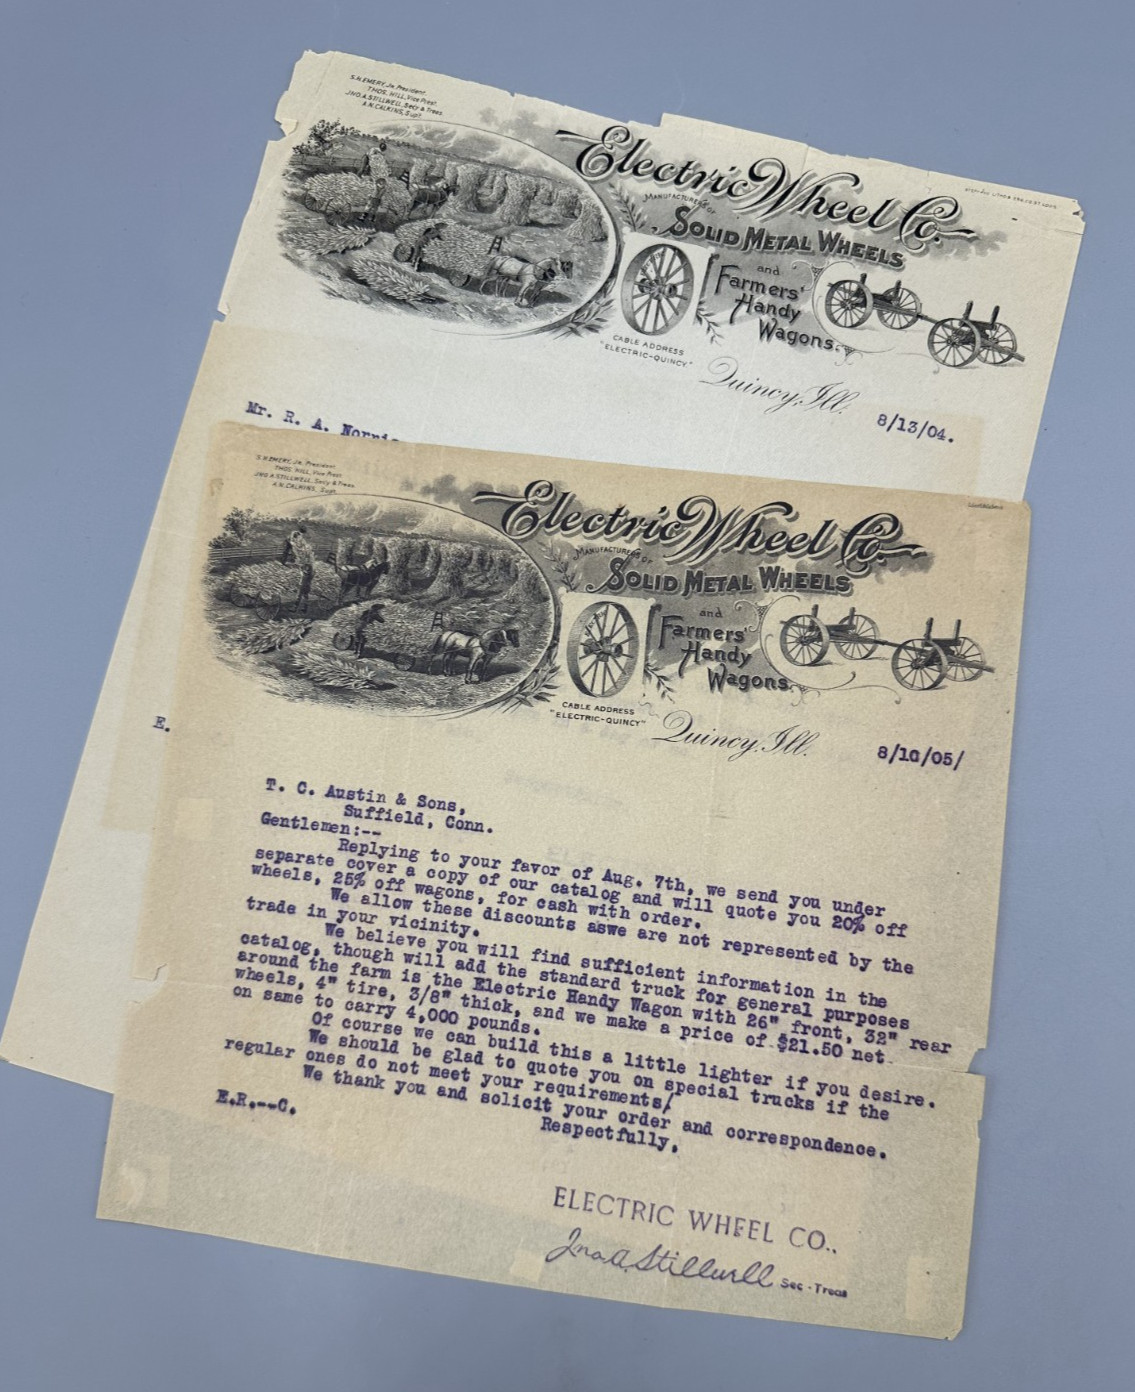 S.H. EMERY, Jr. President.
THOS. HILL, Vice Prest.
JNO. A. STILLWELL, Secy & Treas.
A.N. CALKINS, Supt.
Electric Wheel Co.
MANUFACTURERS OF
SOLID METAL WHEELS
and
Farmers'
Handy
Wagons.
CABLE ADDRESS
"ELECTRIC-QUINCY"
Quincy, Ill.
8/13/04.
Mr. R. A. Norris
E.
S.H. EMERY, Jr. President
THOS. HILL, Vice Prest
JNO. A. STILLWELL, Secy & Treas
A.N. CALKINS, Supt.
Electric Wheel Co.
MANUFACTURERS OF
SOLID METAL WHEELS
and
Farmers'
Handy
Wagons.
CABLE ADDRESS
"ELECTRIC-QUINCY"
Quincy, Ill.
8/10/05/
T. C. Austin & Sons,
Suffield, Conn.
Gentlemen:--
Replying to your favor of Aug. 7th, we send you under
separate cover a copy of our catalog and will quote you 20% off
wheels, 25% off wagons, for cash with order.
We allow these discounts aswe are not represented by the
trade in your vicinity.
We believe you will find sufficient information in the
catalog, though will add the standard truck for general purposes
around the farm is the Electric Handy Wagon with 26" front, 32" rear
wheels, 4" tire, 3/8" thick, and we make a price of $21.50 net
on same to carry 4,000 pounds.
Of course we can build this a little lighter if you desire.
We should be glad to quote you on special trucks if the
regular ones do not meet your requirements/
We thank you and solicit your order and correspondence.
Respectfully,
E.R.--C.
ELECTRIC WHEEL CO.,
Jno. A. Stillwell Sec - Treas